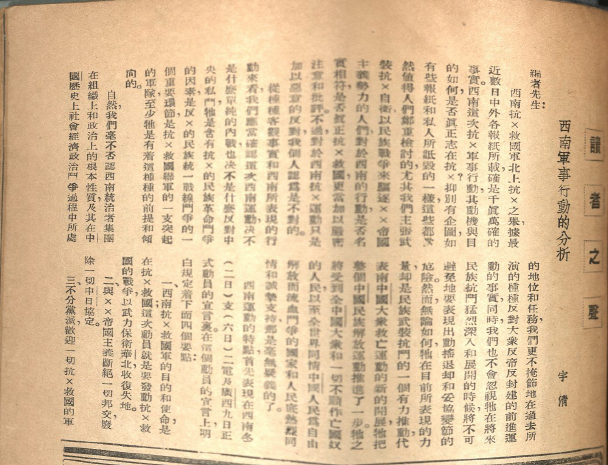 讀者之聲
西南軍事行動的分析
宇
編者先生:
西南抗×救國軍北上抗×之舉據最
近數日中外各報紙所載確是千眞萬確的
事實西南這次抗×軍事行動其動機與目
的如何是否眞正志在抗×?抑別有企圖如
有些報紙和私人所詆毀的一樣這些都
然値得人們鄭重檢討的尤其我們主張武
裝抗×自衛以民族戰爭來驅逐×帝國
主義勢力的人們對於西南的行動是否名
實相符是否眞正抗×救國更當加以嚴密
注意和批評不過對於西南抗×運動只是
加以惡意的反對我個人認爲是不對的。
從種種客觀事實和西南所表現的行
動來看我們應當確認這次西南運動決不
是什麼單純的內戰也決不是什麼反對中
央的私鬥牠是含有抗×的民族革命鬥爭
的因素是反×的民族統一戰線鬥爭的一
個重要環節是抗×救國聯軍的一支突起
的軍隊至少牠是有着這種的前提和傾
向的。
自然我們毫不否認西南統治者集團
在組織上和政治上的根本性質及其在中
國歷史上社會經濟政治鬥爭過程中所處
的地位和任務我們更不掩飾地在過去所
演的種種反擊大衆反帝反封建的前進運
動的事實同時我們也不會忽視牠在將來
民族抗鬥猛烈深入和展開的時候將不可
避免地要表現出動搖退却和妥協變節的
危險然而無論如何牠在目前所表現的力
量却是民族武裝抗鬥的一個有力推動代
表南中國大衆救亡運動的新的開展牠把
整個中國民族解放運動推進了一步牠之
將受到全中國大衆和一切不願作亡國奴
的人民以至全世界同情中國人民爲自由
解放而流血鬥爭的國家和人民底熱烈同
情和誠摯支持都是毫無疑義的了。
西南運動的特點首先表現在西南冬
(二日)支(六日)二電及廣西九日正
式動員的宣言裏在這個動員的宣言上明
白規定着下面四個要點:
一西南抗×救國軍的目的和使命是
在抗×救國這次動員就是要發動抗×救
國的戰爭以武力保衛華北收復失地。
二與××帝國主義斷絕一切邦交廢
除一切中日協定。
三不分黨派歡迎一切抗×救國的軍